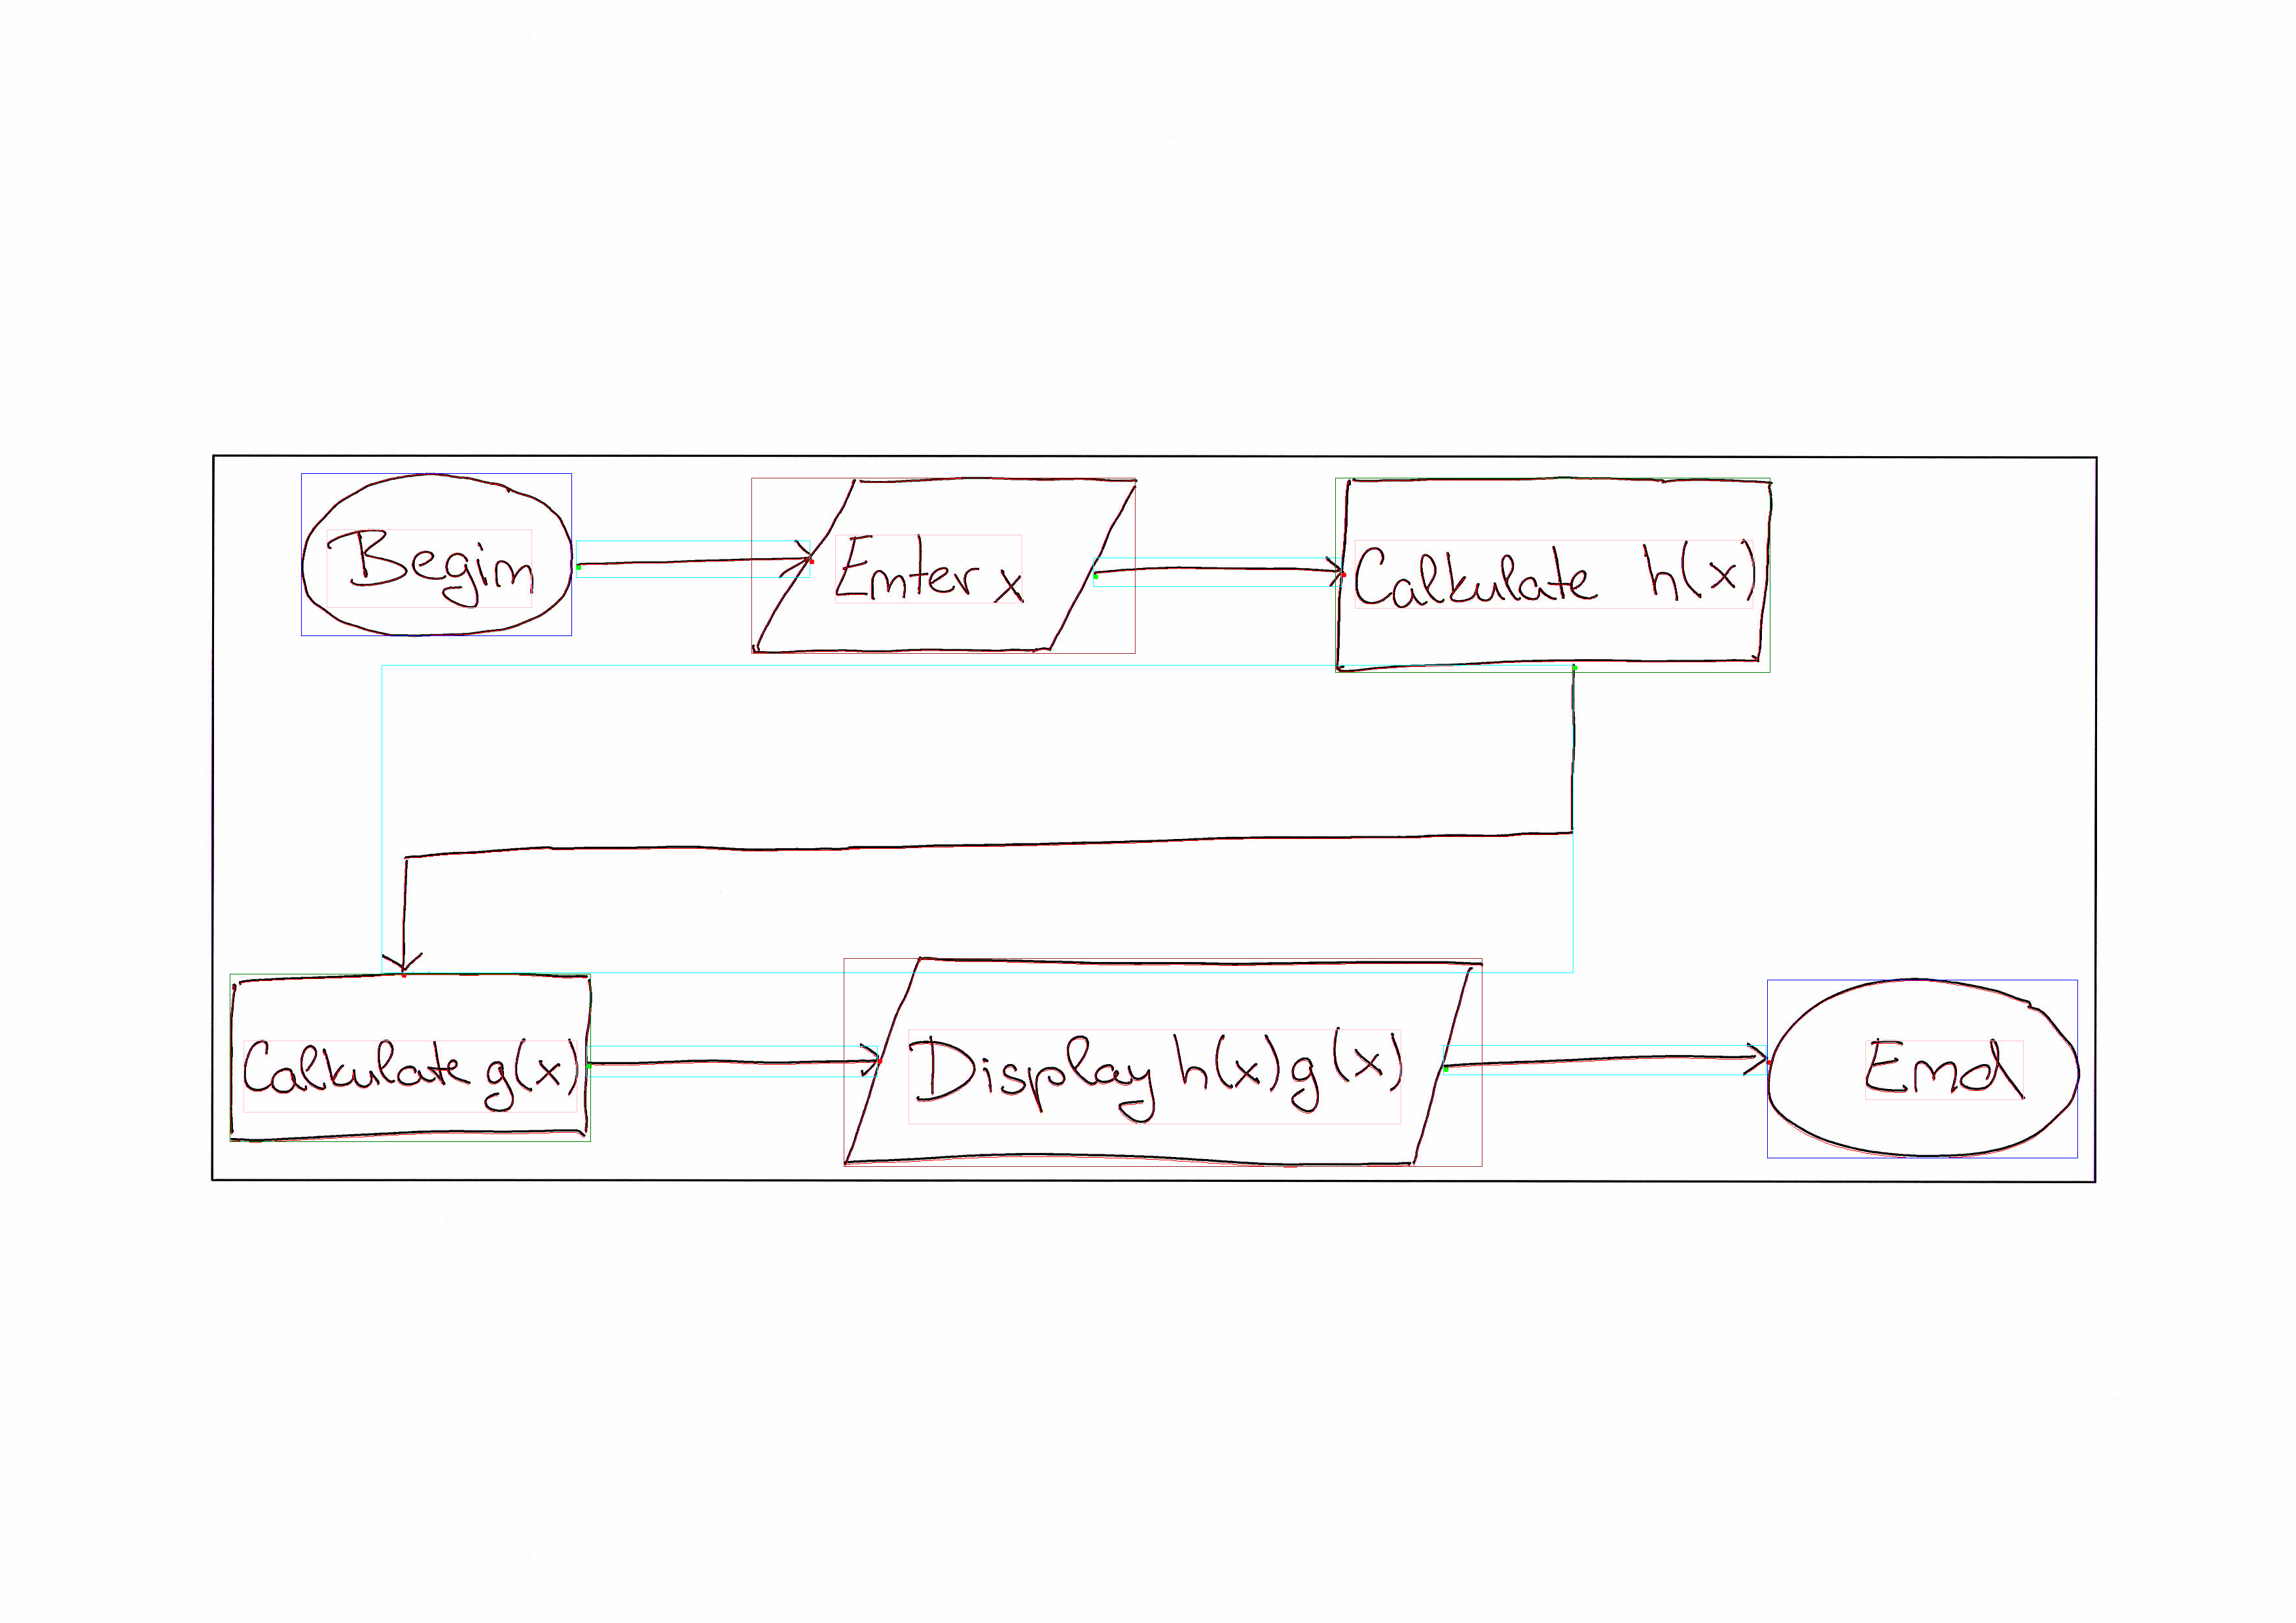 Begin
Enter x
Calkulate h(x)
Calkulate g(x)
Display h(x) g(x)
End